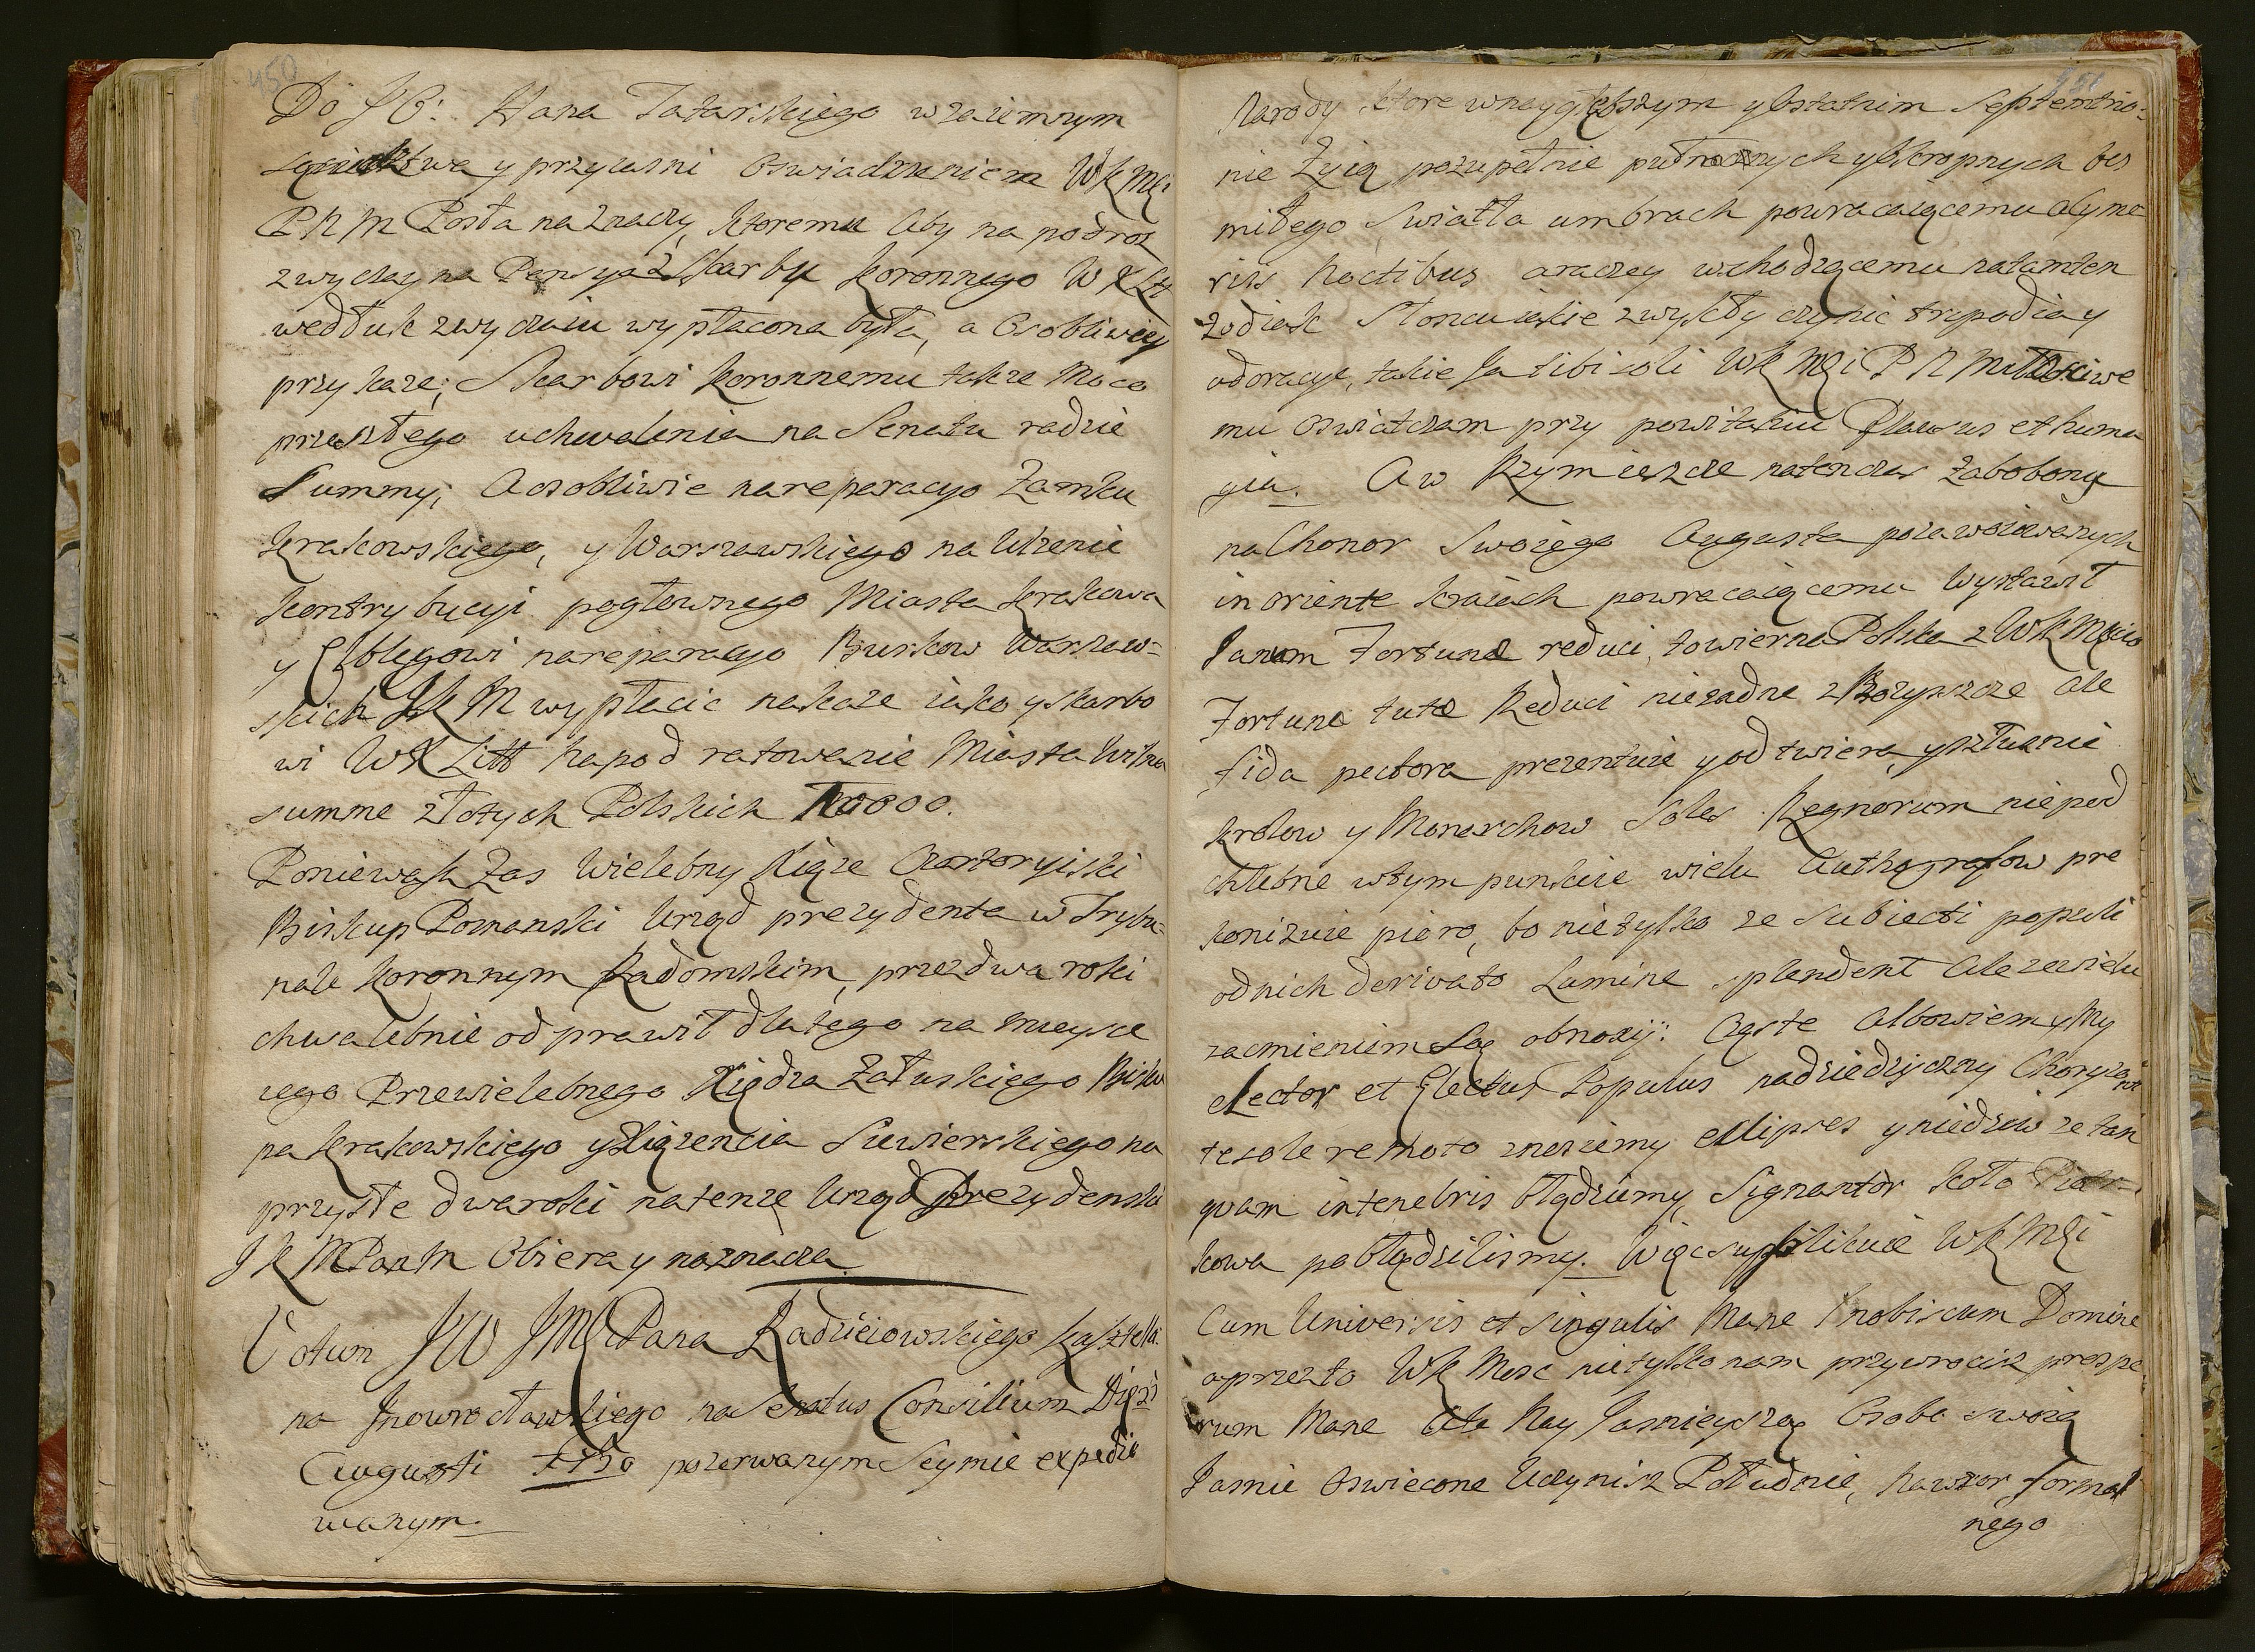 450
Do J O: Hana Tatarskiego wzaiemnym
y przyiazni Oswiadczeniem WKMCi
P N M Posła naznaczy, ktoremu Aby na podroz
zwyczayna Pensya z Skarbu Koronnego W X Litt
wedłuk zwyczaiu wypłacona była, a Osobliwiey
przykaze; Skarbowi Koronnemu takze Moca
przeszłego uchwalenia na Senatu radzie
Summy; Aosobliwie nareperacyo Zamku
Krakowskiego, y Warszawskiego na Ulzenie
Kontrybucyi pogłownego Miasta Krakowa
y Elblęgowi nareperacyo Burkow Warszaw=
skich JKM wypłacic nakaze iako y skarbo
wi WX Litt na pod ratowanie Miasta Wilna
summe złotych Polskich 10000.
Poniewasz Zas Wielebny Xiąze Czartoryiski
Biskup Poznanski Urząd prezydenta w Trybu=
nale Koronnym Radomskim, przez dwa roki
chwalebnie odprawił dlatego na mieysce
iego Przewielebnego Xiędza Załuskiego Bisku
pa Krakowskiego y Xiązencia Siewierskiego na
przyszłe dwaroki natenze Urząd Prezydenski
J K M Pan M Obiera y naznacza.
Votum JW JMC Pana Radzieiowskiego Kasztella
na Jnowrocławskiego na Senatus Consilium Diś
Augusti 1750 pozerwanym Seymie expedio
wanym.
Narody ktore wnaygłębszym y Ostatnim Septemtrio=
nie Zyią pozupełnie pułnocnych y Okropnych bes
miłego Swiatła umbrach powracaiącemu
Noctibus araczey wschodzącemu natamten
zodiak Słoncu iakie zwykły czynic tripodia y
adoracye, takie Ja tibi soli WKMCi P N Miłosciwe
mu oswiatczam przy powitaniu Plausus et
. A w Rzym ieszcze natenczas Zabobony
na Chonor Swoiego Augusta pozawoiowanych
in oriente kraiach powracaiącemu Wystawił
Fanum Fortunæ reduci, towierna Polska z WKMCio
Fortuna tutæ Reduci niezadne z Bozyszcze ale
fida pectora prezentuie y odtwiera, y słusznie
Krolow y Monarchow Soles Regnorum niepod
chlebne wtym punkcie wielu Authografow pre
konizuie pioro, bo nietylko ze Subiecti populi
odnich derivato Lumine splendent Ale zawielu
zacmieniem Są obnoxij: Cęste Albowiem y My
elector et Electus Populus nadziedziczny Choryzon
te sole remoto znosiemy eclipses y niedziw ze tan
quam in tenebris błądziemy, Signantor koło Piotr=
kowa pobłądzilismy. Więc supplikuie WKMCi
Cum Universis et singulis Mane nobiscum Domine
aprzezto WKMosc nietylko nam przywrocisz prospe
rum Mane Ale Nay Jasnieyszą Osobą swoią
Jasnie Oswiecone Uczynisz Południe, Nawzor formal
nego